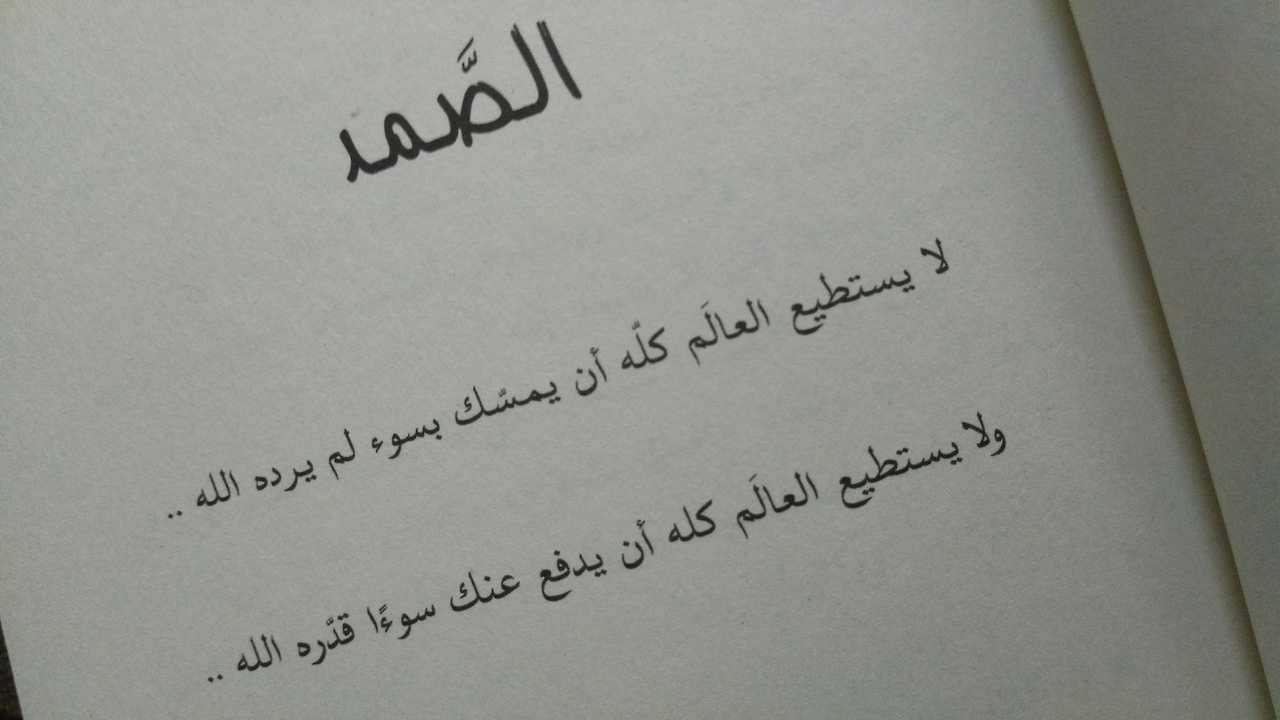 الصَّمد
لا يستطيع العالَم كلّه أن يمسّك بسوء لم يرده الله ..
ولا يستطيع العالَم كله أن يدفع عنك سوءًا قدّره الله ..